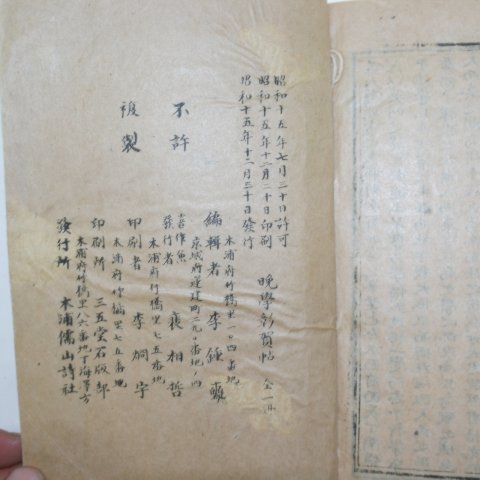 昭和十五年七月二十日許可
昭和十五年十二月二十日印刷
昭和十五年十二月三十日發行
晩學 賀帖 全一冊
木浦府竹橋里一〇四番地
編輯者 李鍾
京城府蓮建町二九〇番地ノ四
著作兼
發行者 裵相哲
木浦府竹橋里七五番地
印刷者 李炯宇
木浦府竹橋里七五番地
印刷所 三五堂石版部
木浦府竹橋里八六番地丁海 方
發行所 木浦儒山詩社
不許
複製